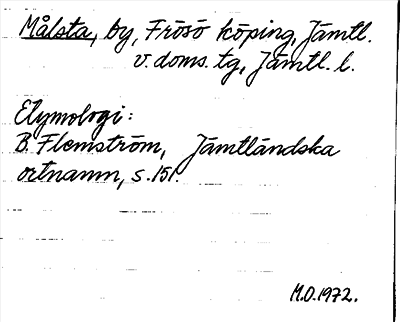 Målsta, by, Frösö köping, Jämtl.
v. doms. tg, Jämtl. l.
Etymologi:
B. Flemström, Jämtländska
ortnamn, s. 151.
M.O. 1972.